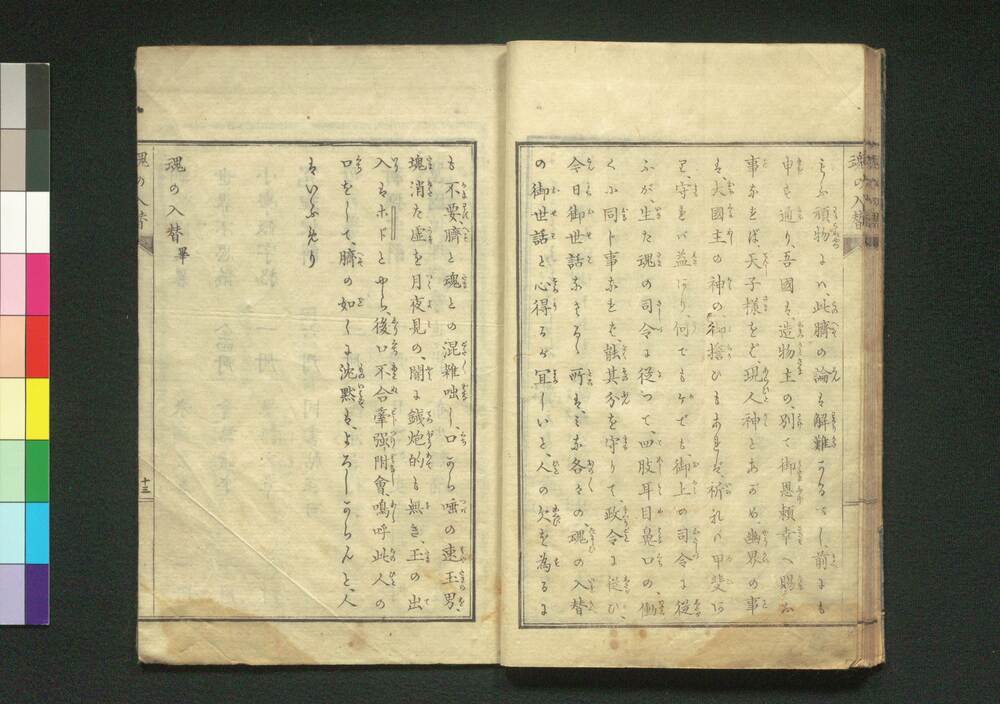 魂の入替
もふ頑物には、此臍の論も解難かるべし、前にも
申も通り、吾國は、造物主の、別て御恩頼幸へ賜ふ
事なれば、天子様をど、現人神とあがめ、幽界の事
は、大國主の神の、御捨ひもあれど、祈れバ甲斐ア
リ、守れバ益アリ、何でもカでも、御上の司令に従
ふが、生た魂の司令に従つて、四肢耳目鼻口の、働
くと同ト事なれど、銘其分を守りて、政令に従ひ、
今日御世話なさる、所は、みな各々の、魂の入替
の御世話と心得るが宜しいと、人の欠を為るに
も不要臍と魂との混雑咄し、口から唾の速玉男、
魂消た虚を月夜見の、闇に鉄炮的も無き、玉の出
入はホドとやら、後口不合牽强附會、嗚呼此人の
口をして、臍の如くに沈黙は、よろしからんと、人
はいふめり
魂の入替畢
魂の入替
十三